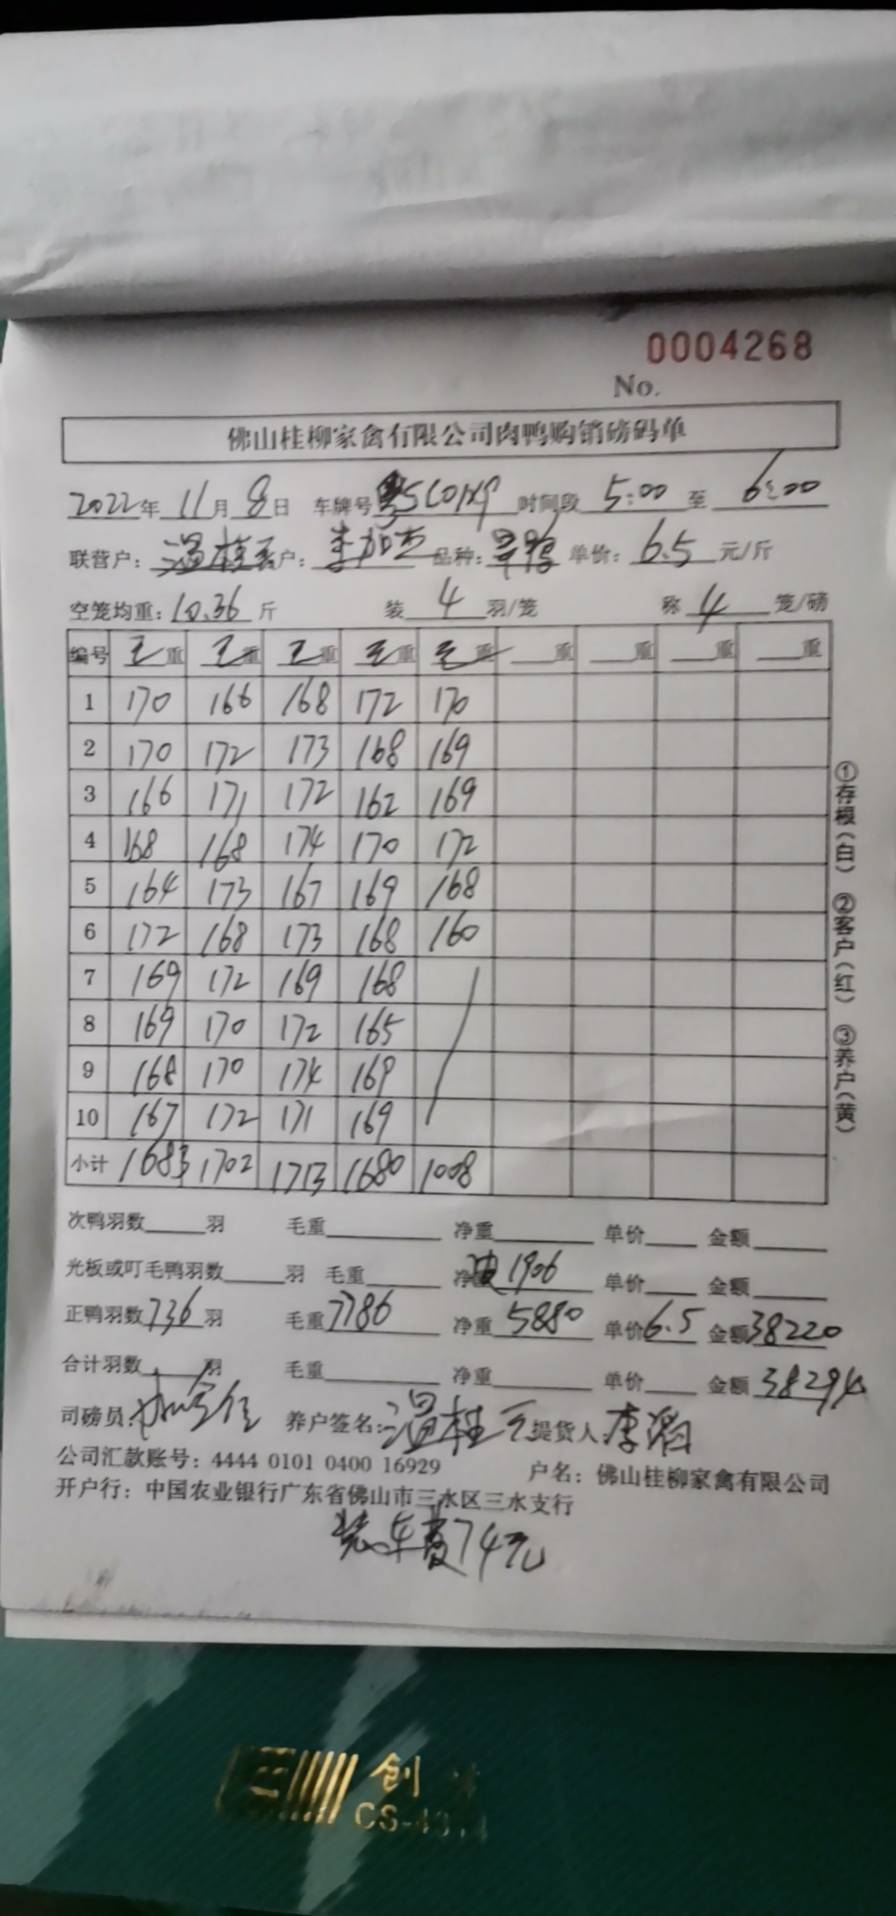 0004268
No.
佛山桂柳家禽有限公司肉鸭购销磅码单
2022年 11月 8日 车牌号 粤 时间段 5:00 至 6:00
联营户: 温桂 客户: 李加杰 品种: 单价: 6.5 元/斤
空笼均重: 10.36 斤 装 4 羽/笼 称 4 笼/磅
编号 毛重 毛重 毛重 毛重 毛重 重 重 重 重
1 170 166 168 172 170
2 170 172 173 168 169
3 166 171 172 162 169
4 168 168 174 170 172
5 164 173 167 169 168
6 172 168 173 168 160
7 169 172 169 168
8 169 170 172 165
9 168 170 174 169
10 167 172 171 169
小计 1683 1702 1713 1680 1008
①存根(白) ②客户(红) ③养户(黄)
次鸭羽数 羽 毛重 净重 单价 金额
光板或叮毛鸭羽数 羽 毛重 净 皮1906 单价 金额
正鸭羽数 736 羽 毛重 7786 净重 5880 单价 6.5 金额 38220
合计羽数 羽 毛重 净重 单价 金额 38294
司磅员: 养户签名: 温桂 提货人 李滔
公司汇款账号: 4444 0101 0400 16929 户名: 佛山桂柳家禽有限公司
开户行: 中国农业银行广东省佛山市三水区三水支行
装车费74元
创
CS-4